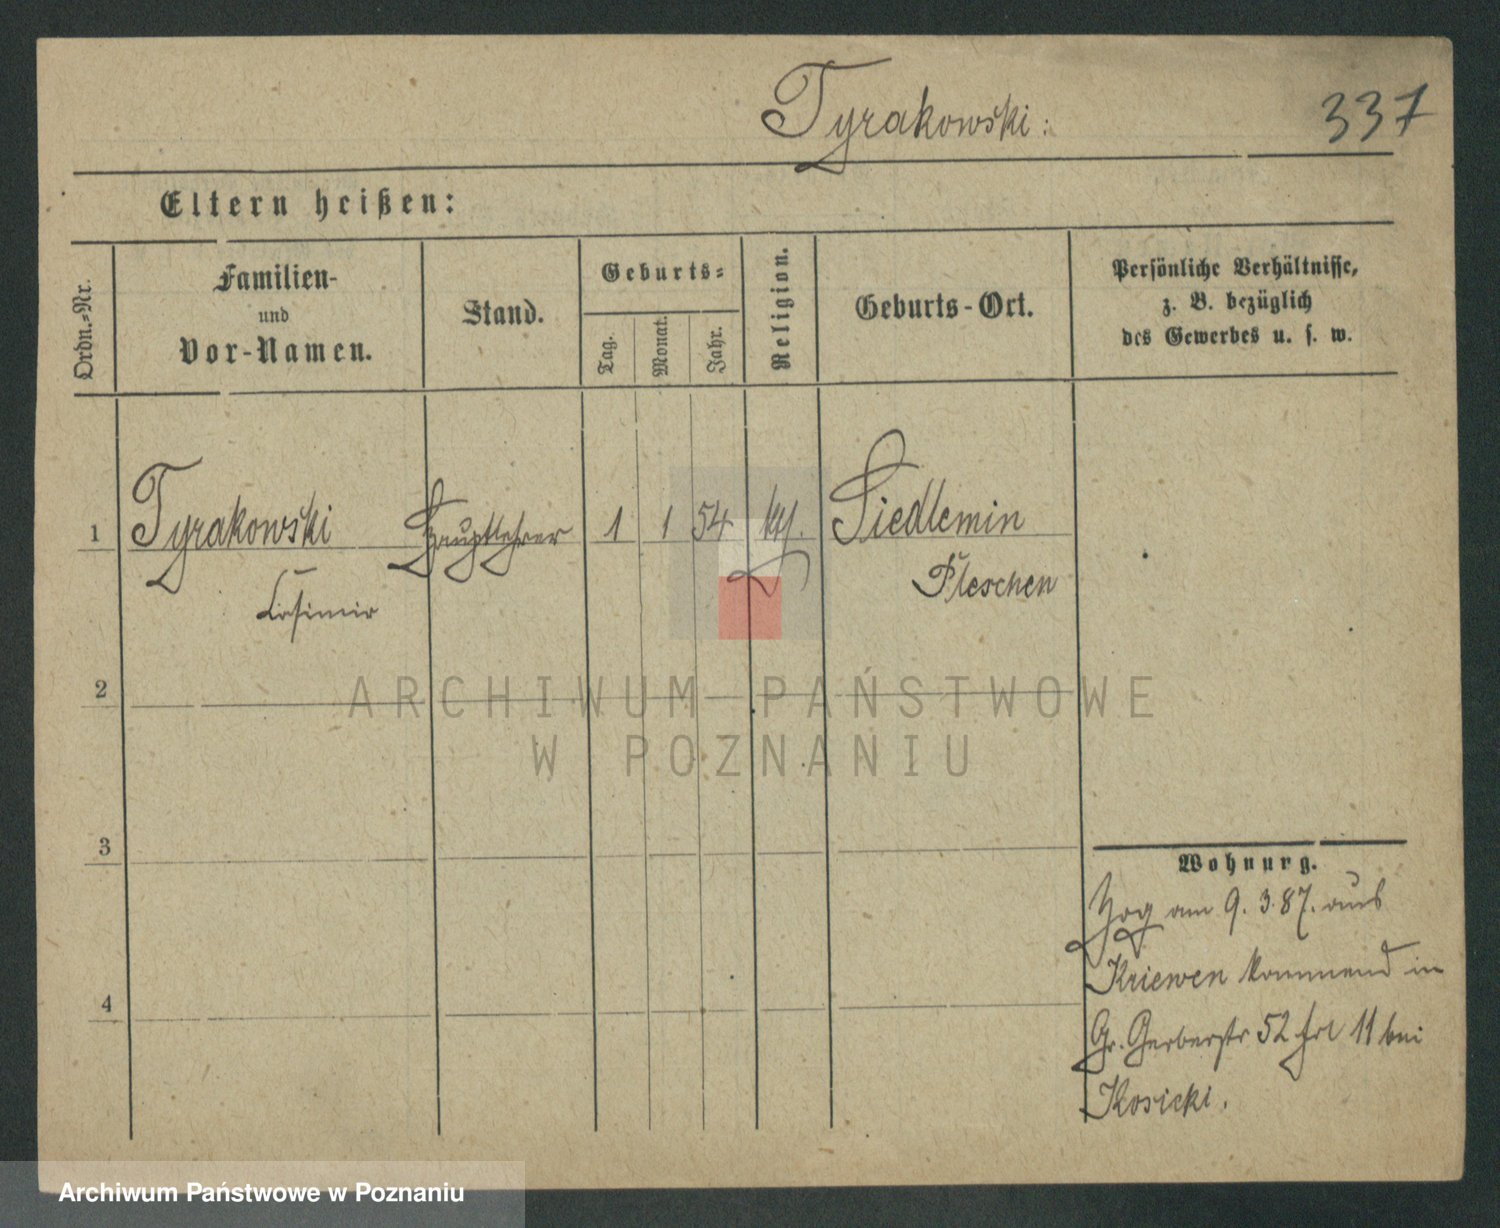 Tyrakowski:
337
Eltern heißen:
Ordn.=Nr.
Familien-
und
Vor-Namen.
Stand.
Geburts=
Tag.
Monat.
Jahr.
Religion.
Geburts-Ort.
Persönliche Verhältnisse,
z. B. bezüglich
des Gewerbes u. s. w.
1
Tyrakowski
Casimir
Hauptlehrer
1
1
54
kth.
Siedlemin
Pleschen
2
3
4
Wohnurg.
Zog am 9.3.87. aus
Kriewen kommend in
Gr. Gerberstr 52 11 bei
Kosicki.
ARCHIWUM PAŃSTWOWE
W POZNANIU
Archiwum Państwowe w Poznaniu